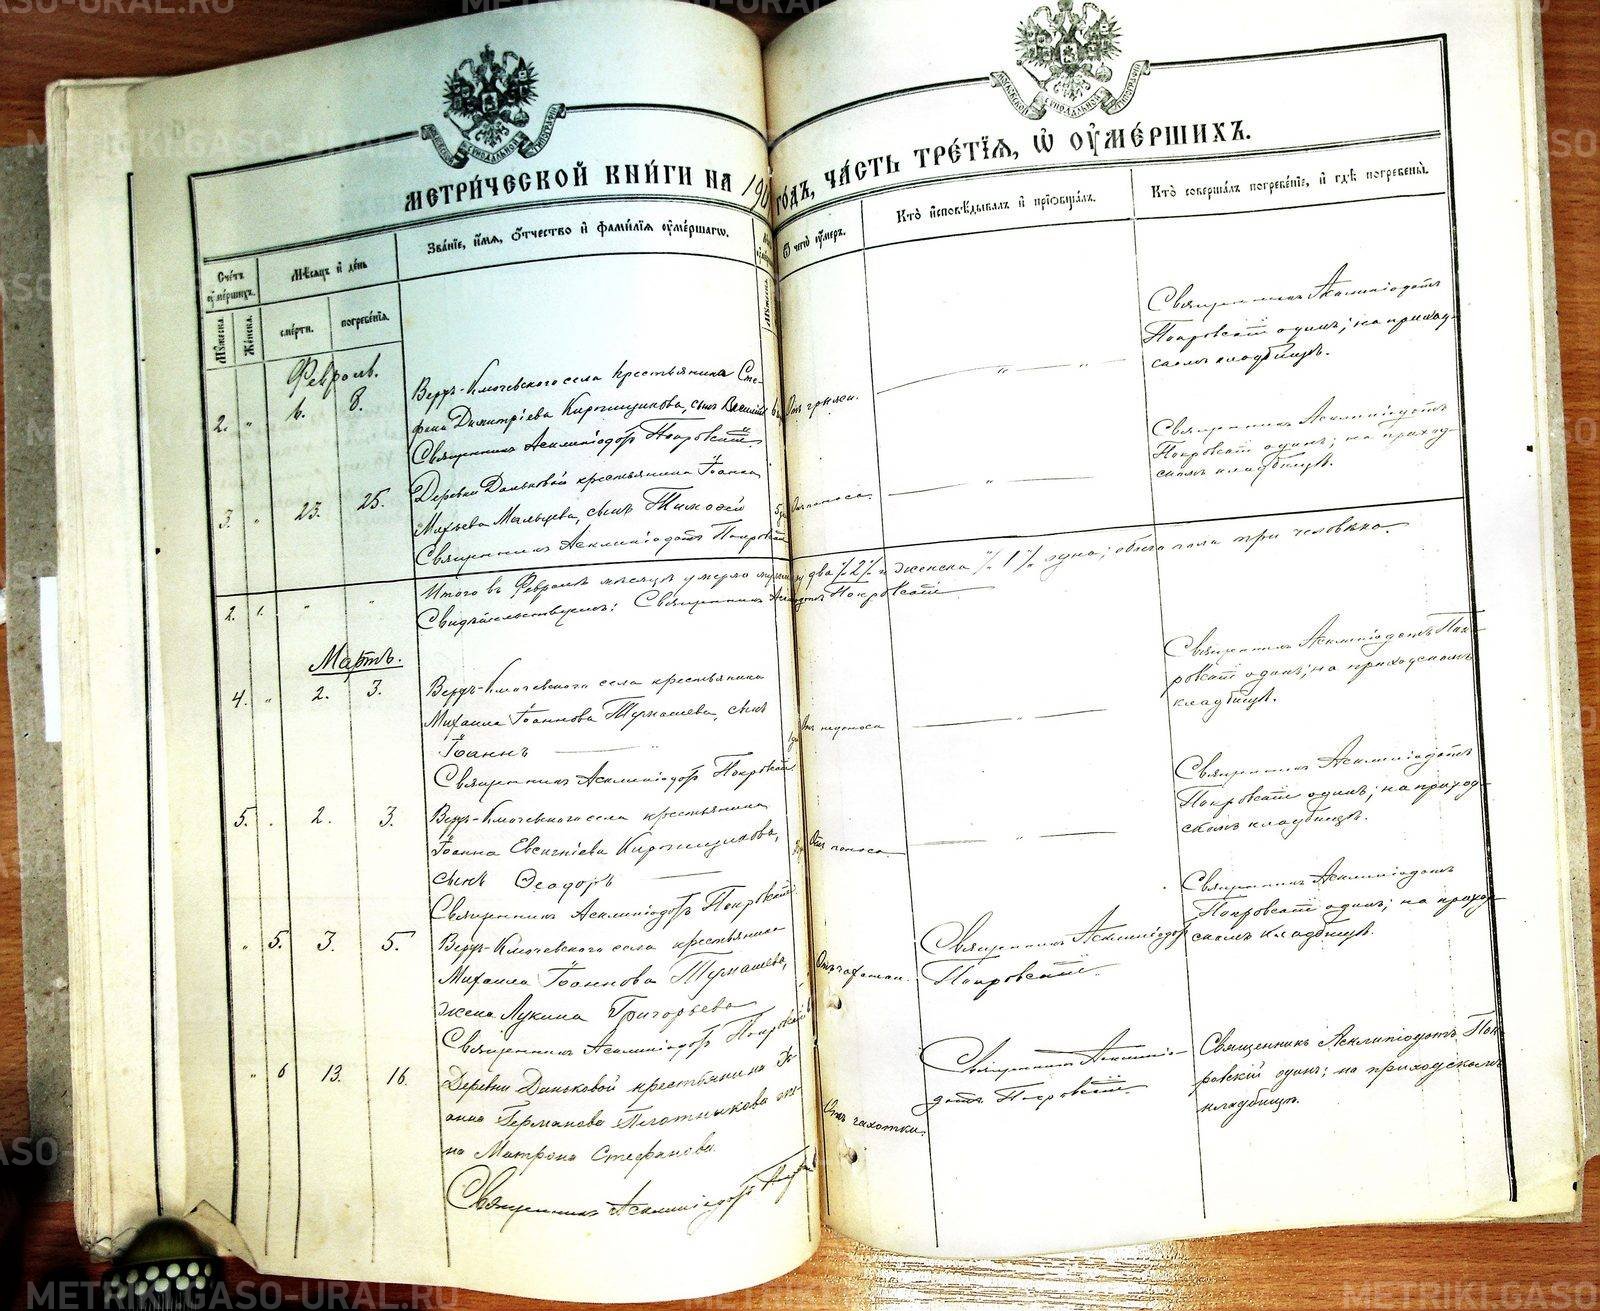 МОСКОВСКОЙ СѴНОДАЛЬНОЙ ТИПОГРАФІИ
МОСКОВСКОЙ СѴНОДАЛЬНОЙ ТИПОГРАФІИ
МЕТРИ́ЧЕСКОЙ КНИ́ГИ НА 190
ГО́ДЪ, ЧА́СТЬ ТРЕ́ТІѦ, Ѡ҆ ОУ҆МЕ́РШИХЪ.
Сче́тъ оу҆ме́ршихъ.
Мѣ́сѧцъ и҆ де́нь
Зва́нїе, и҆́мѧ, ѻ҆́тчество и҆ фами́лїѧ оу҆ме́ршагѡ.
Ѿ чегѡ̀ оу҆́меръ.
Кто̀ и҆сповѣ́дывалъ и҆ прїѡбща́лъ.
Кто̀ соверша́лъ погребе́нїе, и҆ гдѣ̀ погребены̀.
Мꙋ́жеска.
Же́нска.
сме́рти.
погребе́нїѧ.
Февраль.
2. " 6. 8.
Верхъ-Ключевского села крестьянина Сте-
фана Димитріева Кирпищикова, сынъ Василій
Священникъ Асклипіодотъ Покровскій
Отъ грыжи.
Священникъ Асклипіодотъ
Покровскій одинъ; на приход-
скомъ кладбищѣ.
3. " 23. 25.
Деревни крестьянина Іоанна
Мальцева, сынъ Тимоѳей
Священникъ Асклипіодотъ Покровскій
Отъ поноса.
Священникъ Асклипіодотъ
Покровскій одинъ; на приход-
скомъ кладбищѣ.
2. 1. " "
Итого въ Февралѣ мѣсяцѣ умерло два % 2 % и женска % 1 % одна; обоего пола три человѣка.
Свидѣтельствуемъ: Священникъ Асклипіодотъ Покровскій
Мартъ.
4. " 2. 3.
Верхъ-Ключевского села крестьянина
Михаила Іоаннова Тумашева, сынъ
Іоаннъ
Священникъ Асклипіодотъ Покровскій
Священникъ Асклипіодотъ Пок-
ровскій одинъ; на приходскомъ
кладбищѣ.
5. " 2. 3.
Верхъ-Ключевского села крестьянина
Іоанна Евсигніева Кирпищикова,
сынъ Ѳеодоръ
Священникъ Асклипіодотъ Покровскій
Отъ поноса.
Священникъ Асклипіодотъ
Покровскій одинъ; на приход-
скомъ кладбищѣ.
" 5. 3. 5.
Верхъ-Ключевского села крестьянина
Михаила Іоаннова Тумашева,
жена Лукина Григорьева
Священникъ Асклипіодотъ Покровскій
Отъ чахотки.
Священникъ Асклипіодотъ
Покровскій.
Священникъ Асклипіодотъ
Покровскій одинъ; на приход-
скомъ кладбищѣ.
" 6 13. 16.
Деревни крестьянина Іо-
анна Германова Плотникова же-
на Матрона Стефанова
Священникъ Асклипіодотъ
Отъ чахотки.
Священникъ Асклипіо-
дотъ Покровскій.
Священникъ Асклипіодотъ Пок-
ровскій одинъ; на приходскомъ
кладбищѣ.
METRIKI.GASO-URAL.RU
METRIKI.GASO-URAL.RU